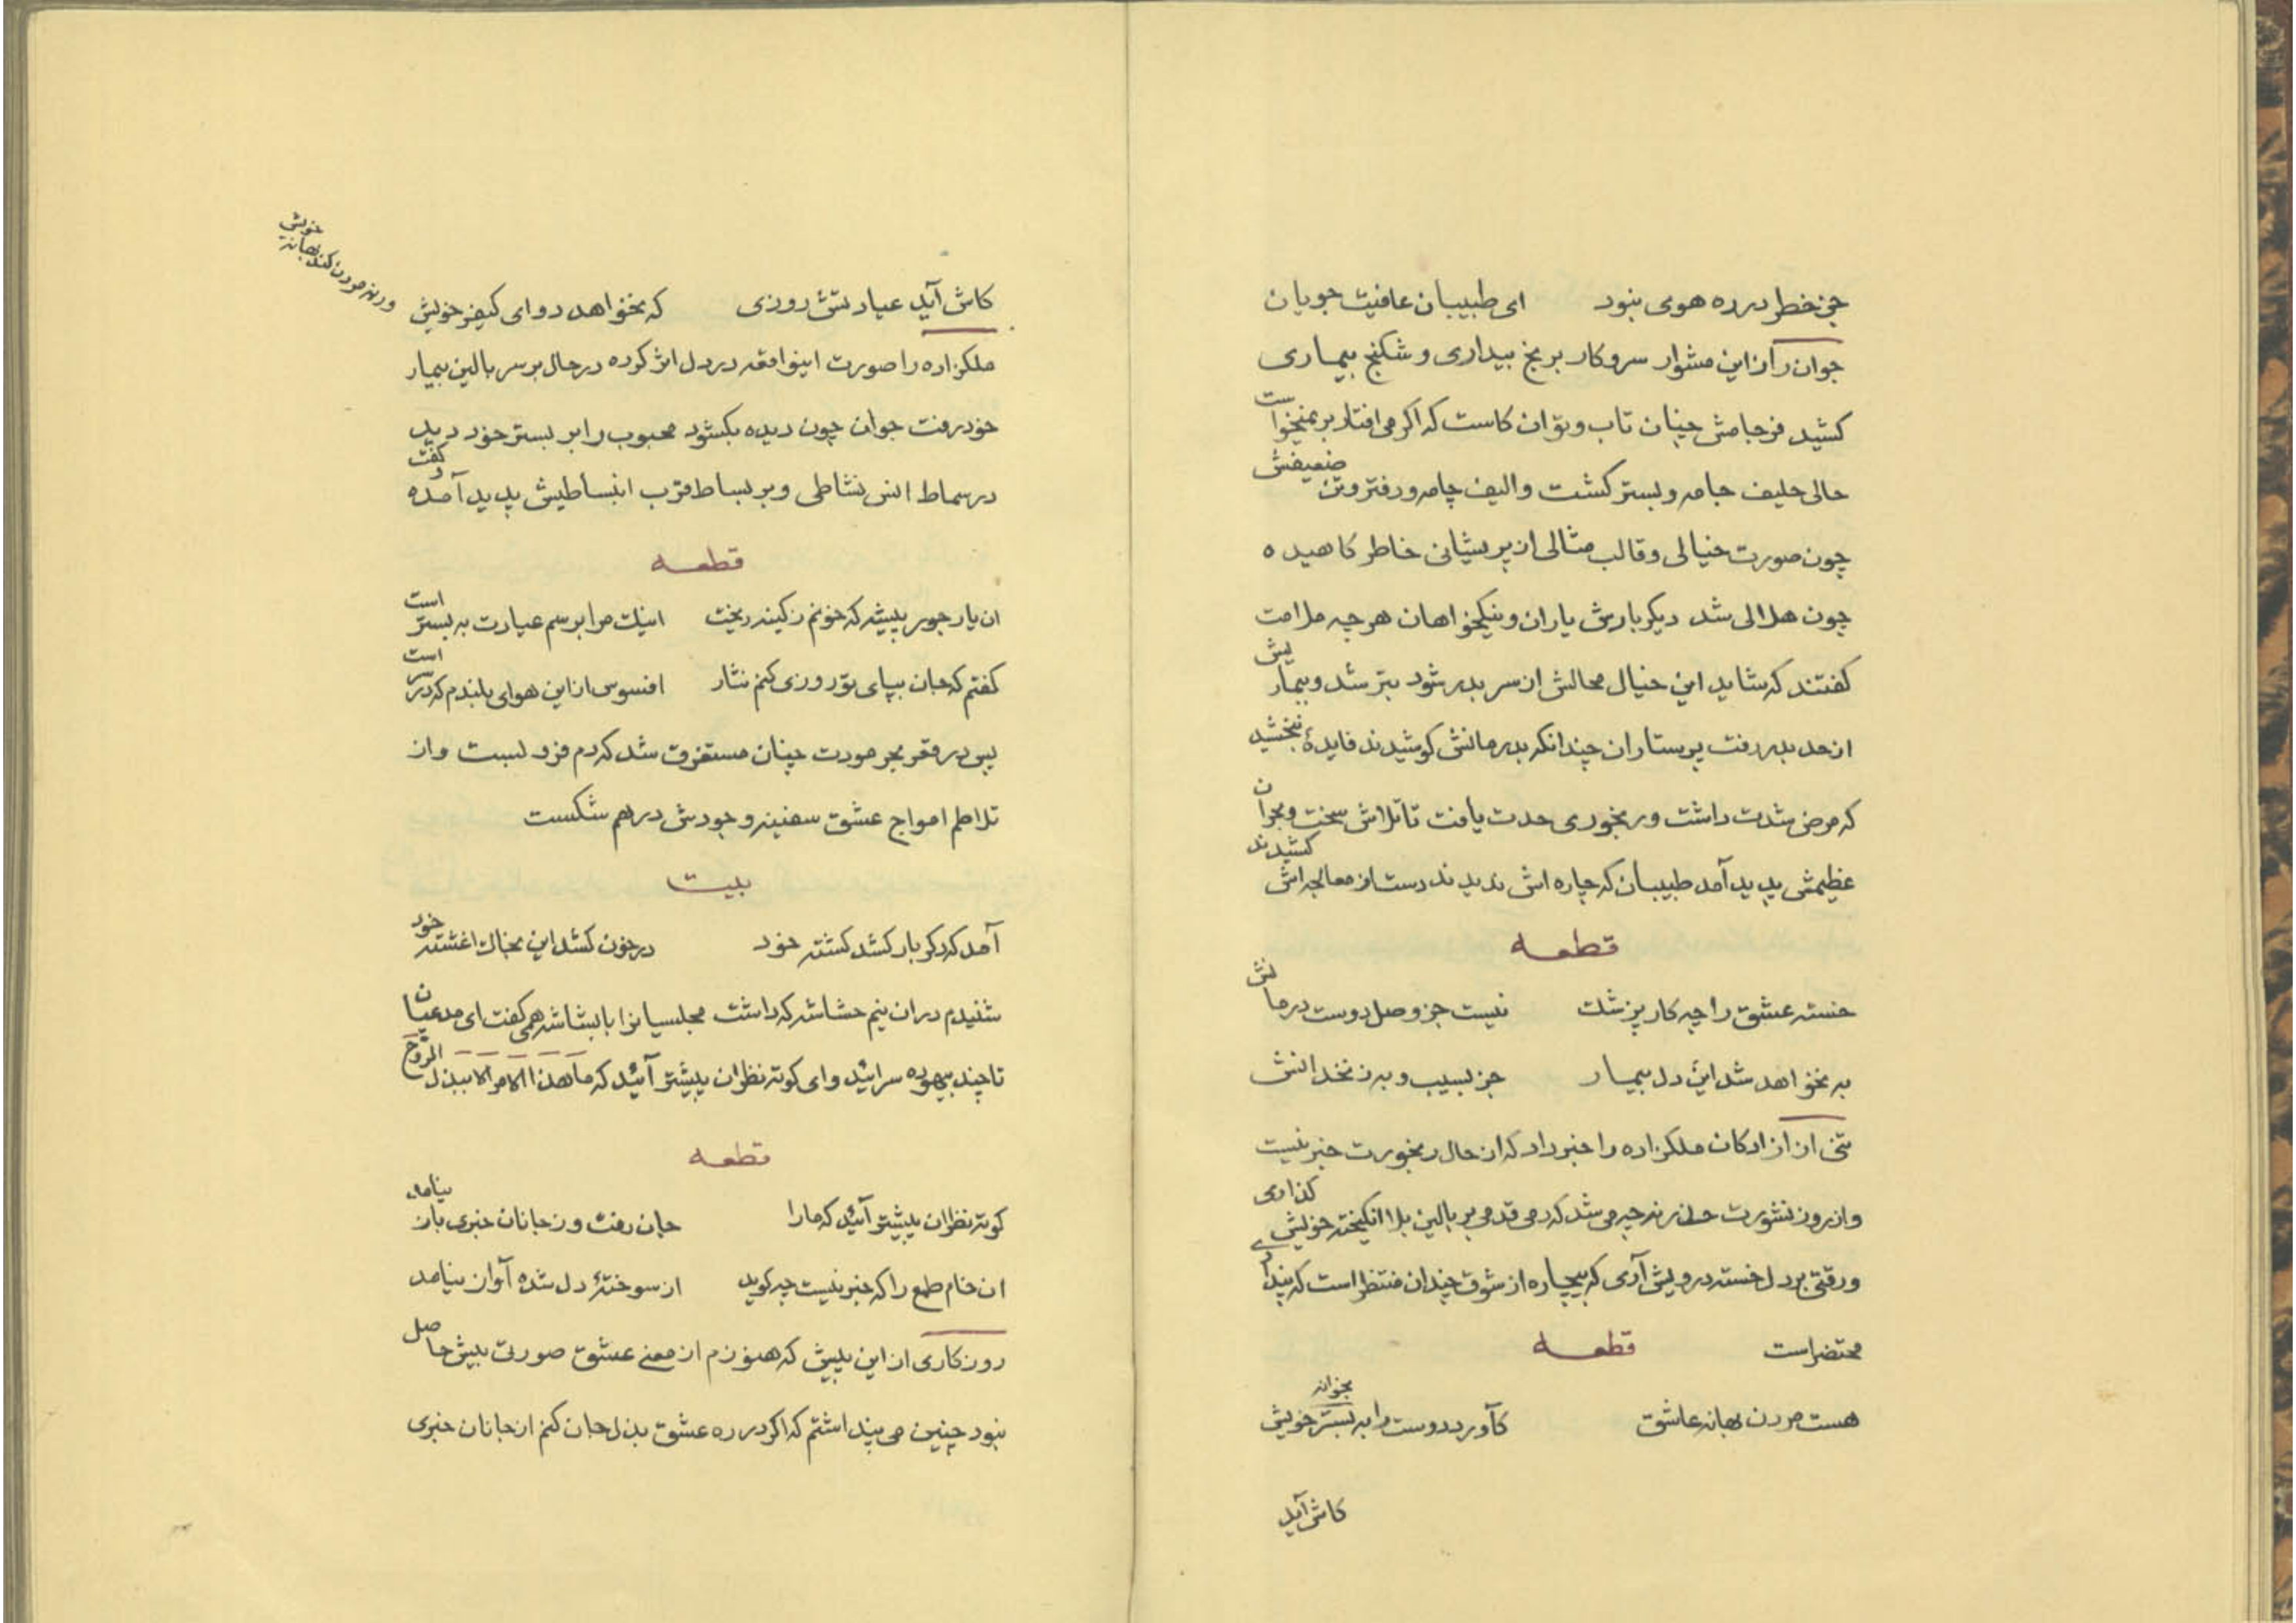 جز خطر در ره هوی نبود ای طبیبان عافیت جویان
جوان را از این مشوار سر و کار بر نج بیداری و شکنج بیماری
کشید فرجامش چنان تاب و توان کاست که اگر می افتاد بر نمیخواست
حالی حلیف جامه و بستر گشت و الیف چامه و رفتر و تن ضعیفش
چون صورت خیالی و قالب مثالی از پریشانی خاطر کاهیده
چون هلالی شد دیگر بارش یاران و نیکخواهان هر چه ملامت
گفتند که شاید این خیال محالش از سر بدر شود بتر شد و بیماریش
از حد بدر رفت پرستاران چندانکه بدرمانش کوشیدند فایدهٔ نبخشید
که مرض شدت داشت و رنجوری حدت یافت تا تلاش سخت و بحران
عظیمش پدید آمد طبیبان که چاره اش ندیدند دست از معالجه اش کشیدند
قطعه
خسته عشق را چه کار پزشک نیست جز وصل دوست درمانش
به نخواهد شد این دل بیمار جز بسیب و به زنخدانش
تنی از آزادگان ملکزاده را خبر داد که از حال رنجورت خبر نیست
و از برون نشورت حذر نه چه می شد که دمی قدمی بر بالین بلا انگیخته خویش گذاری
و رقتی بر دل خسته درویش آری که بیچاره از شوق چندان منتظر است که پنداری
محتضر است قطعه
هست مردن بهانه عاشق کآورد دوست را به بستر خویش بخوانه
کاش آید
کاش آید عیادتش روزی که نخواهد دوای کیفر خویش
ورنه مردن کند بهانه خویش
ملکزاده را صورت اینواقعه در دل اثر کرده در حال بر سر بالین بیمار
خود رفت جوان چون دیده بگشود محبوب را بر بستر خود دید
در سماط انس نشاطی و بر بساط قرب انبساطیش پدید آمده و گفت
قطعه
ان یار جور پیشه که خونم ز کینه ریخت اینک مرا برسم عیادت به بستر است
گفتم که جان بپای تو روزی کنم نثار افسوس از این هوای بلندم که در سر است
پس در قعر بحر مودت چنان مستغرق شد که دم فرو بست و از
تلاطم امواج عشق سفینه وجودش در هم شکست
بیت
آمد که دگر بار کشد کشته خود در خون کشد این بخاک اغشته خود
شنیدم در ان نیم حشاشه که داشت مجلسیانرا با بشاشه همی گفت ای مدعیان
تا چند بیهوده سرائید و ای کوته نظران پیشتر آئید که ما هذا الامر الا ببذل الروح
قطعه
کوته نظران پیشتر آئید که ما را جان رفت و ز جانان خبری باز نیامد
ان خام طمع را که خبر نیست چه گوید از سوختهٔ دل شده آواز نیامد
روزگاری از این پیش که هنوزم از معنی عشق صورتی بیش حاصل
نبود چنین می پنداشتم که اگر در ره عشق بذل جان کنم از جانان خبری